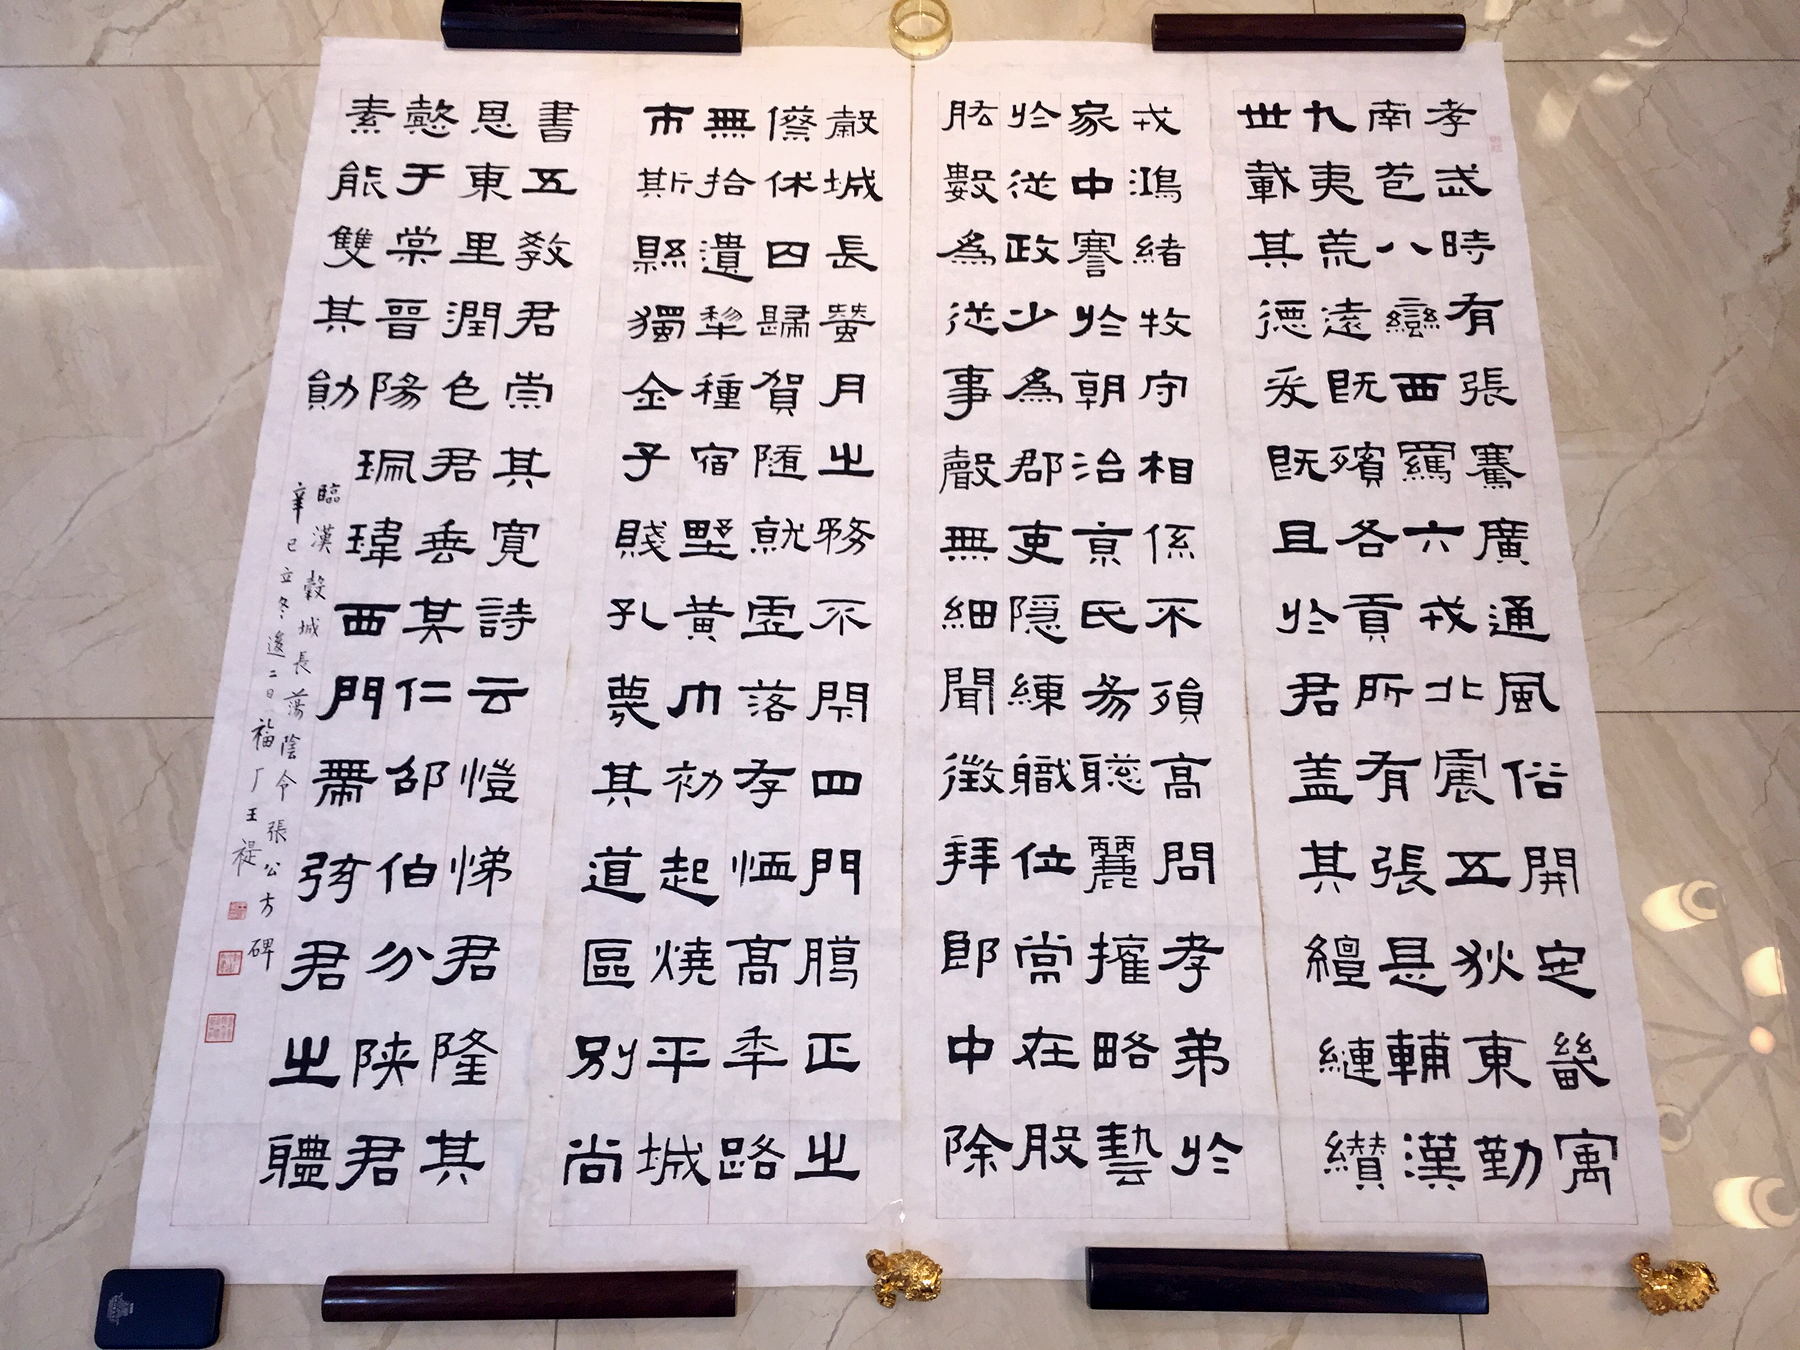 孝武時有張騫廣通風俗開定畿㝢
南苞八蠻西羈六戎北震五狄東勤
九夷荒遠既殯各貢所有張是輔漢
世載其德爰既且於君盖其繵縺纘
戎鴻緒牧守相係不殞高問孝弟於
家中謇於朝治京氏易聰麗攉略藝
於從政少為郡吏隱練職位常在股
肱數為從事聲無細聞徵拜郎中除
穀城長蠶月之務不閉四門臘正之
僚休囚歸賀隨就虛落存恤高年路
無拾遺犂種宿野黃巾初起燒平城
市斯縣獨全子賤孔蔑其道區別尚
書五教君崇其寬詩云愷悌君隆其
恩東里潤色君垂其仁邵伯分陝君
懿于棠晉陽珮瑋西門帶弦君之體
素能雙其勛
臨漢穀城長蕩陰令張公方碑
辛巳立冬後二日福厂王禔